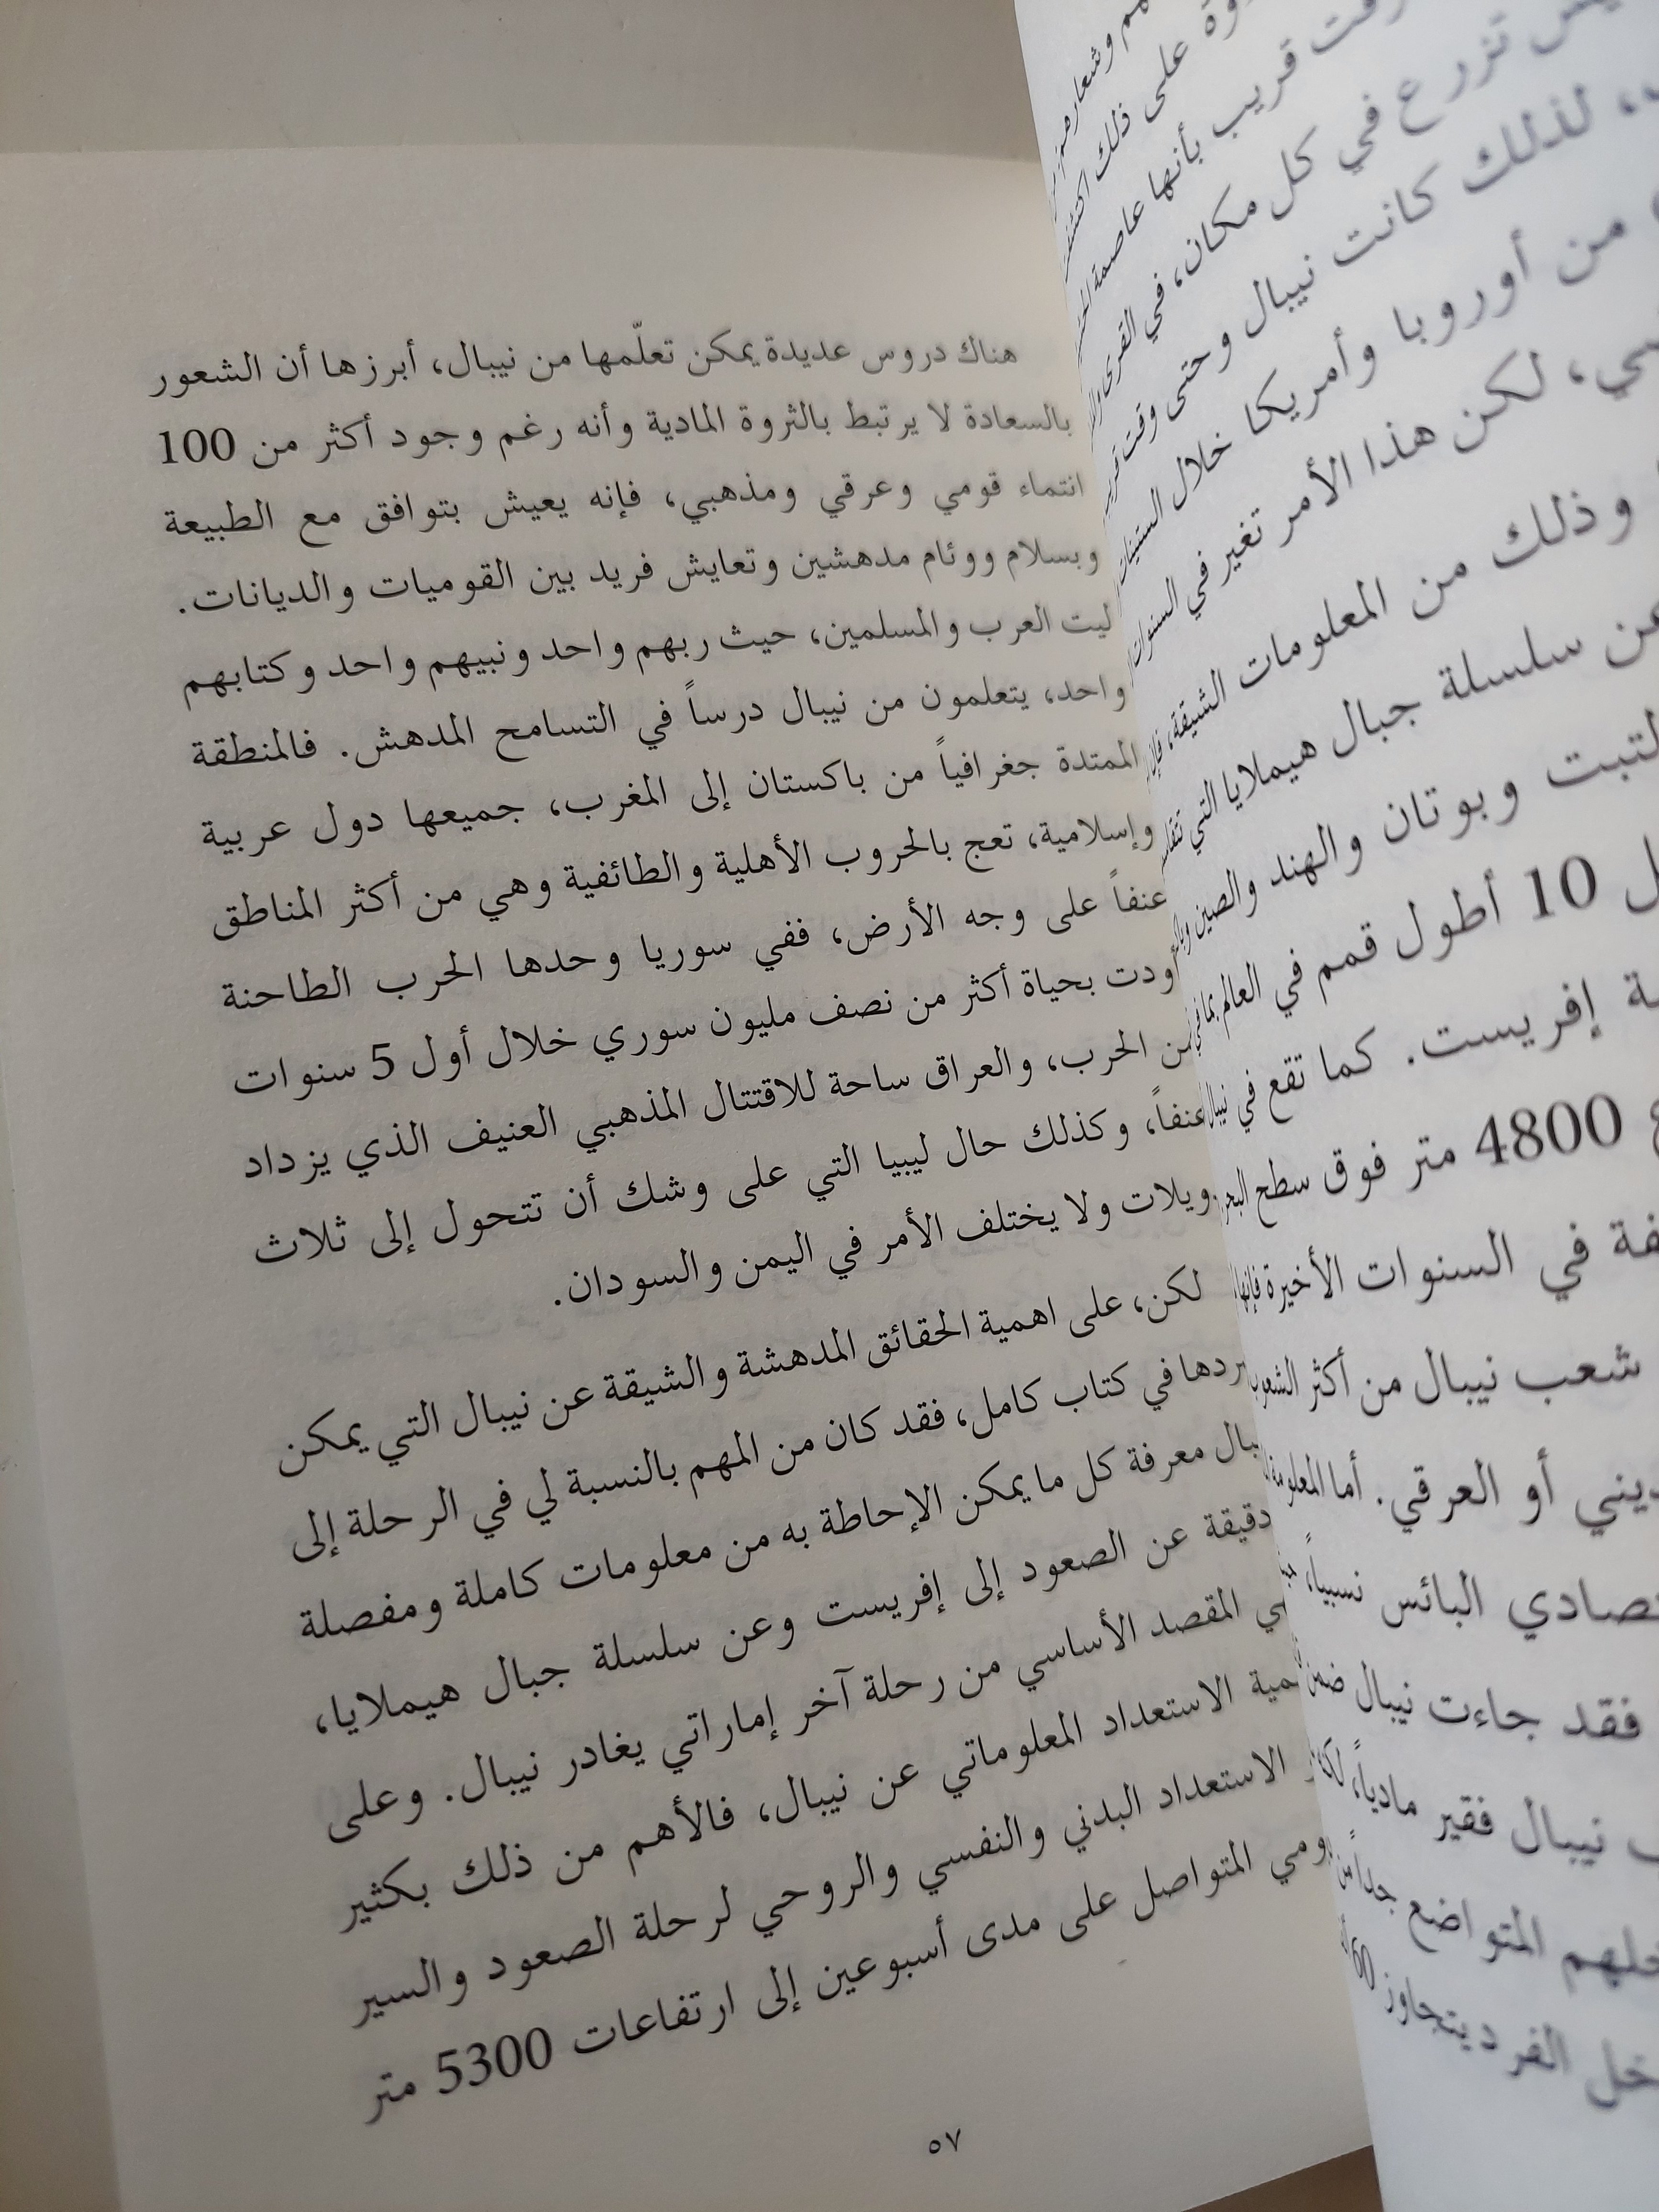 هناك دروس عديدة يمكن تعلّمها من نيبال، أبرزها أن الشعور
بالسعادة لا يرتبط بالثروة المادية وأنه رغم وجود أكثر من 100
انتماء قومي وعرقي ومذهبي، فإنه يعيش بتوافق مع الطبيعة
وبسلام ووئام مدهشين وتعايش فريد بين القوميات والديانات.
ليت العرب والمسلمين، حيث ربهم واحد ونبيهم واحد وكتابهم
واحد، يتعلمون من نيبال درساً في التسامح المدهش. فالمنطقة
الممتدة جغرافياً من باكستان إلى المغرب، جميعها دول عربية
وإسلامية، تعج بالحروب الأهلية والطائفية وهي من أكثر المناطق
عنفاً على وجه الأرض، ففي سوريا وحدها الحرب الطاحنة
أودت بحياة أكثر من نصف مليون سوري خلال أول 5 سنوات
من الحرب، والعراق ساحة للاقتتال المذهبي العنيف الذي يزداد
عنفاً، وكذلك حال ليبيا التي على وشك أن تتحول إلى ثلاث
دويلات ولا يختلف الأمر في اليمن والسودان.
لكن، على اهمية الحقائق المدهشة والشيقة عن نيبال التي يمكن
في كتاب كامل، فقد كان من المهم بالنسبة لي في الرحلة إلى
معرفة كل ما يمكن الإحاطة به من معلومات كاملة ومفصلة
دقيقة عن الصعود إلى إفريست وعن سلسلة جبال هيملايا،
المقصد الأساسي من رحلة آخر إماراتي يغادر نيبال. وعلى
الاستعداد المعلوماتي عن نيبال، فالأهم من ذلك بكثير
الاستعداد البدني والنفسي والروحي لرحلة الصعود والسير
المتواصل على مدى أسبوعين إلى ارتفاعات 5300 متر
٥٧
على ذلك
قريب بأنها عاصمة
تزرع في كل مكان، في القرى
لذلك كانت نيبال وحتى وقت
من أوروبا وأمريكا خلال الستينات
لكن هذا الأمر تغير في السنوات
وذلك من المعلومات الشيقة،
سلسلة جبال هيملايا التي
وبوتان والهند والصين
10 أطول قمم في العالم بما في
إفريست. كما تقع في نيبال
4800 متر فوق سطح البحر
في السنوات الأخيرة فإنها
شعب نيبال من أكثر الشعوب
أو العرقي. أما
البائس نسبياً،
فقد جاءت نيبال ضمن
نيبال فقير مادياً،
المتواضع جداً
الفرد يتجاوز 60